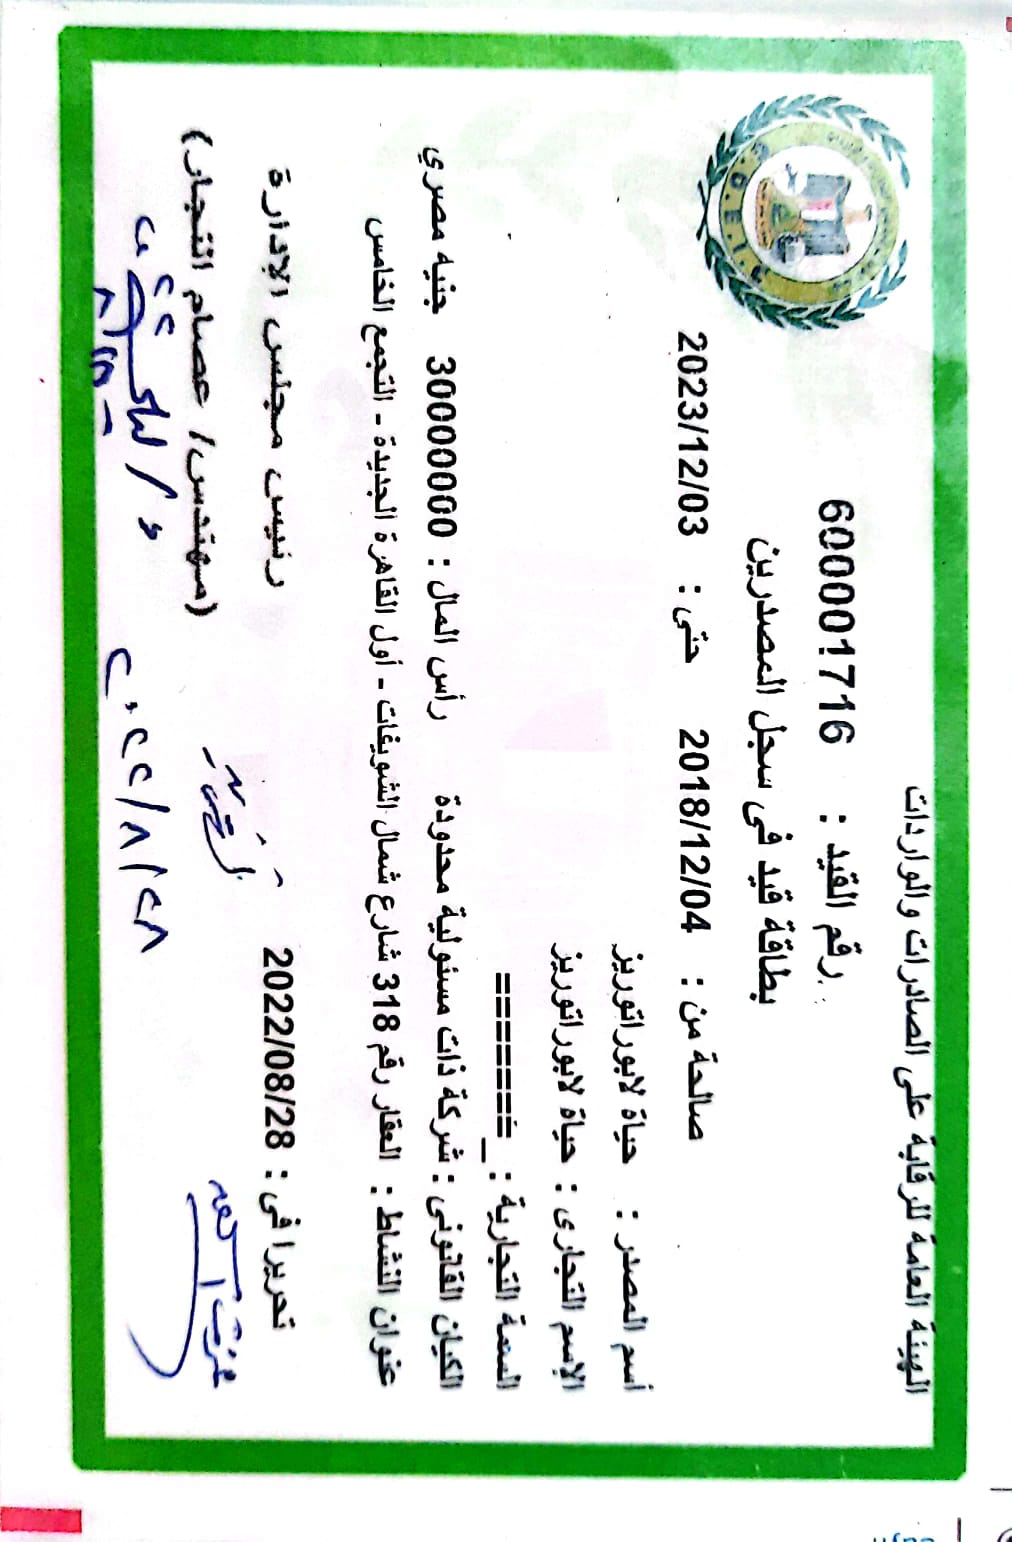 الهيئة العامة للرقابة على الصادرات والواردات
G.O.E.I.C
رقم القيد : 600001716
بطاقة قيد فى سجل المصدرين
صالحة من : 2018/12/04 حتى : 2023/12/03
أسم المصدر : حياة لابوراتوريز
الإسم التجارى : حياة لابوراتوريز
السمة التجارية : _=======
الكيان القانونى : شركة ذات مسئولية محدودة رأس المال : 30000000 جنيه مصري
عنوان النشاط : العقار رقم 318 شارع شمال الشويفات - أول القاهرة الجديدة - التجمع الخامس
تحريرا فى : 2022/08/28 رئيس مجلس الإدارة
(مهندس/ عصام النجار)
٢٠٢٢/٨/٢٨